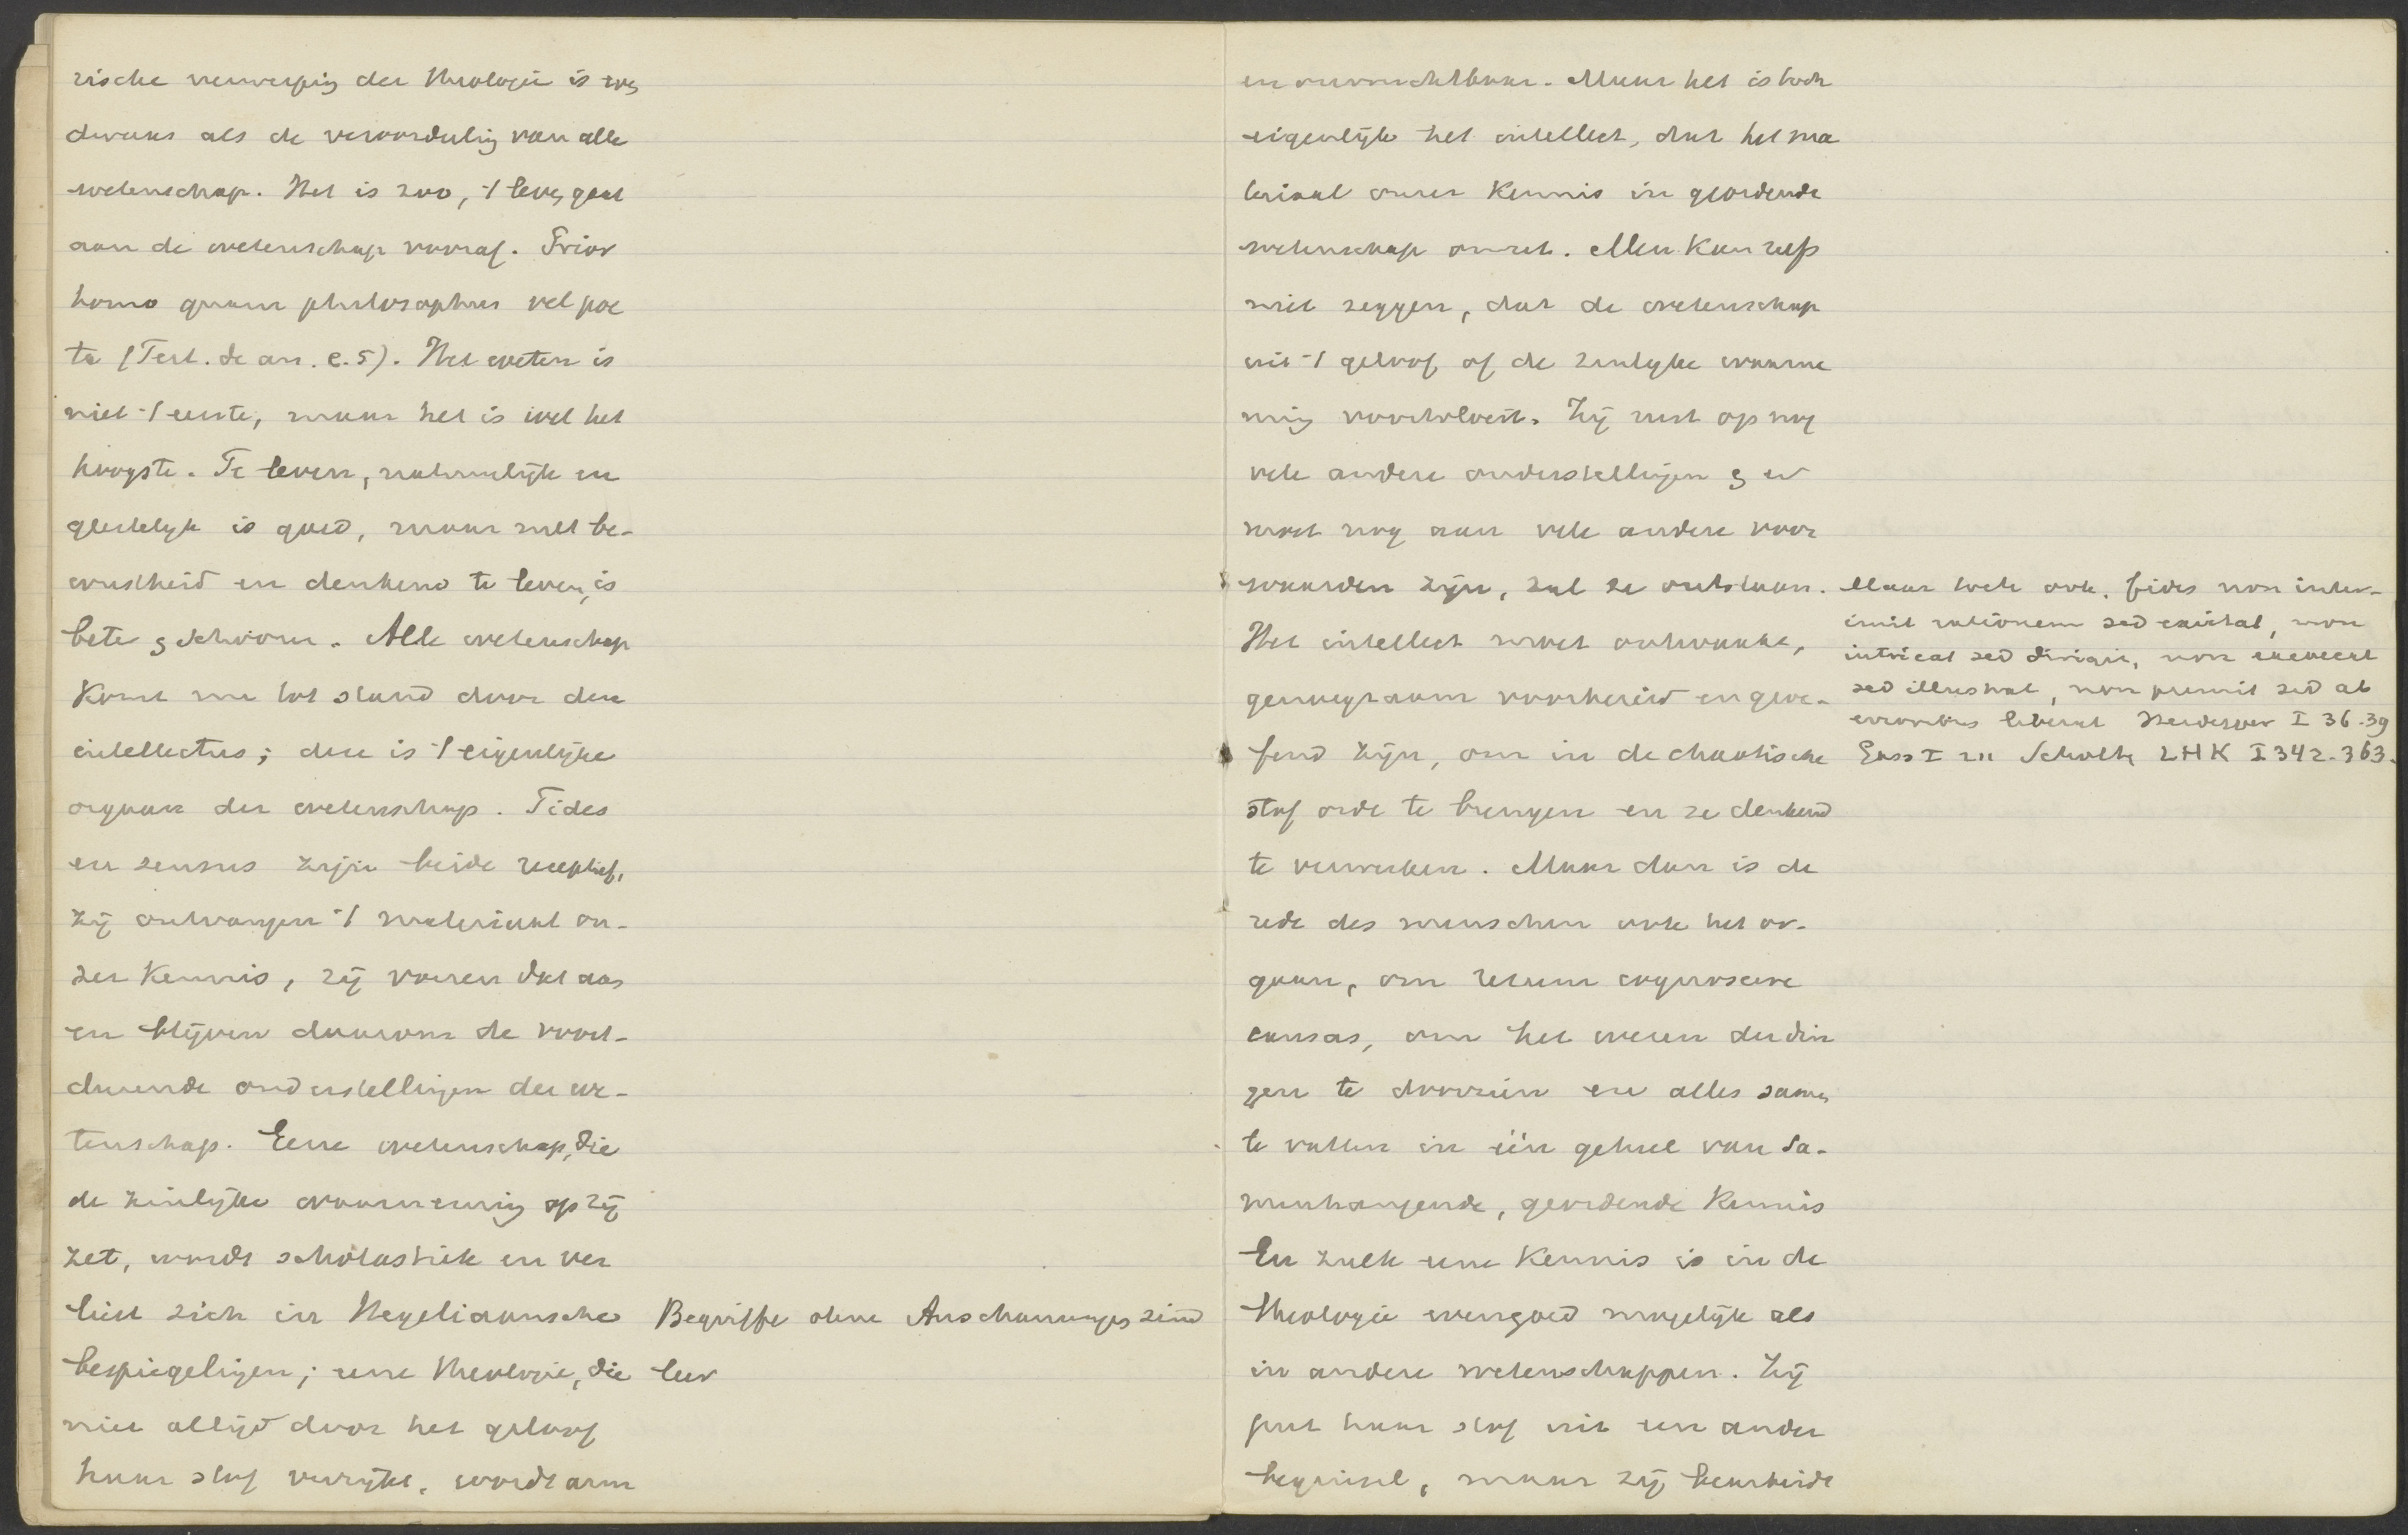 rische verwerping der theologie is
dwaas als de veroordeeling van alle
wetenschap. Het is zoo, 't leven gaat
aan de wetenschap vooraf. Prior
homo quam philosophus vel poe
ta (Tert. de an. c. 5). Het weten is
niet 't eerste, maar het is wel het
hoogste. Te leven, natuurlijk en
geestelijk is goed, maar met be-
wustheid en denkend te leven, is
beter & schoon. Alle wetenschap
komt nu tot stand door den
intellectus; deze is 't eigenlijke
orgaan der wetenschap. Fides
en sensus zijn beide receptief,
zij ontvangen 't materiaal on-
zer kennis, zij voeren dat aan
en blijven daarom de voort-
durende onderstellingen der we-
tenschap. Eene wetenschap, die
de zinlijke waarneming op zij
zet, wordt scholastiek en ver
liest zich in Hegeliaansche
bespiegelingen; eene theologie, die
niet altijd door het geloof
haar stof verrijkt, wordt arm
Begriffe ohne Anschauungen sind
leer
en onvruchtbaar. Maar het is toch
eigenlijk het intellect, dat het ma
teriaal onzer kennis in geordende
wetenschap omzet. Men kan zelfs
niet zeggen, dat de wetenschap
uit 't geloof of de zinlijke waarne
ming voortvloeit. Zij rust op nog
vele andere onderstellingen & er
moet nog aan vele andere voor
waarden zijn, zal ze ontstaan.
Het intellect moet ontwaakt,
genoegzaam voorbereid en geoe-
fend zijn, om in de chaotische
stof orde te brengen en ze denkend
te verwerken. Maar dan is de
rede des menschen ook het or-
gaan, om rerum cognoscere
causas, om het wezen der din
gen te doorzien en alles samen
te vatten in één geheel van sa-
menhangende, geordende kennis
En zulk eene kennis is in de
theologie evengoed mogelijk als
in andere wetenschappen. Zij
put haar stof uit een ander
beginsel, maar zij bearbeidt
Maar toch ook. fides non inter-
imit rationem sed excitat, non
intricat sed dirigit, non excaecat
sed illustrat, non premit sed ab
erroribus liberat Heidegger I 36-39
Scholten LHK I 342-363.